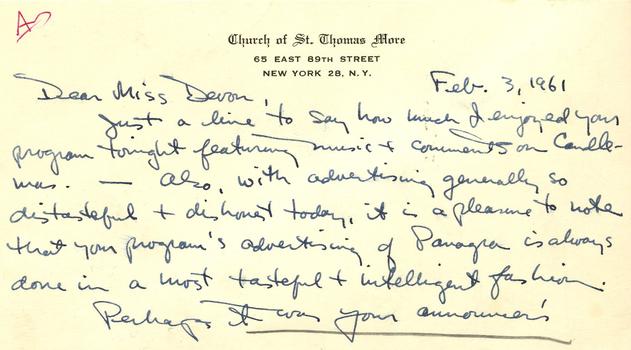 A
Church of St. Thomas More
65 EAST 89TH STREET
NEW YORK 28, N.Y.
Feb. 3, 1961
Dear Miss Devon,
Just a line to say how much I enjoyed your
program tonight featuring music + comments on Candle-
mas. — Also, with advertising generally so
distasteful + dishonest today, it is a pleasure to note
that your program's advertising of Panagra is always
done in a most tasteful + intelligent fashion.
Perhaps it was your announcer's